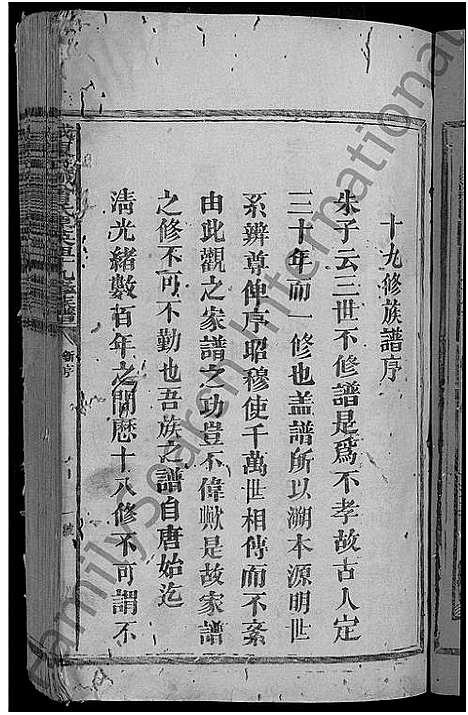 十九修族譜序
朱子云三世不修譜是爲不孝故古人定
三十年而一修也蓋譜所以溯本源明世
系辨尊伸序昭穆使千萬世相傳而不紊
由此觀之家譜之功豈不偉歟是故家譜
之修不可不勤也吾族之譜自唐始迄
清光緒數百年之間歷十八修不可謂不
FamilySearch International